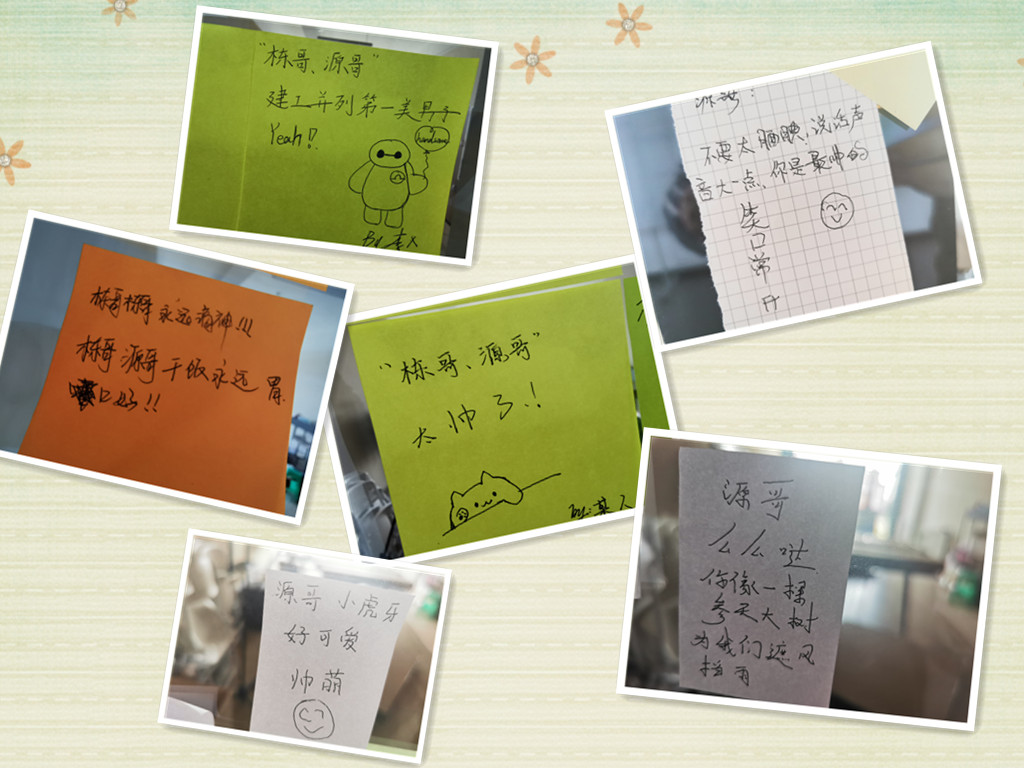 "栋哥、源哥"
建工并列第一美男子
Yeah!
handsome
By
不要太腼腆,说话声
音大一点、你是最帅的
笑口常开
栋哥
永远精神!!!
栋哥 源哥干饭永远胃
口好!!
"栋哥、源哥"
太帅了!!
某人
源哥
么么哒
你像一棵
参天大树
为我们遮风
挡雨
源哥 小虎牙
好可爱
帅萌